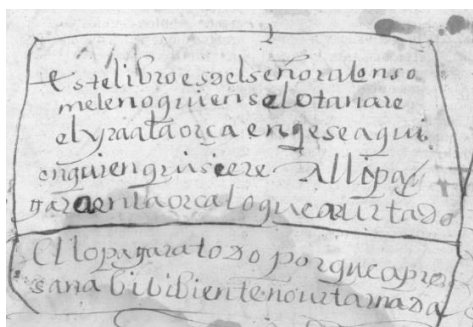 estelibroesdelseñoralonso
melenoquienselotanare
elyraatāorcaengeseaqui
enquienquisiere Allipa
garaenlaorcaloqueaurtado
Ellopagaratodo porqueapre
sanabibibientenourtamada